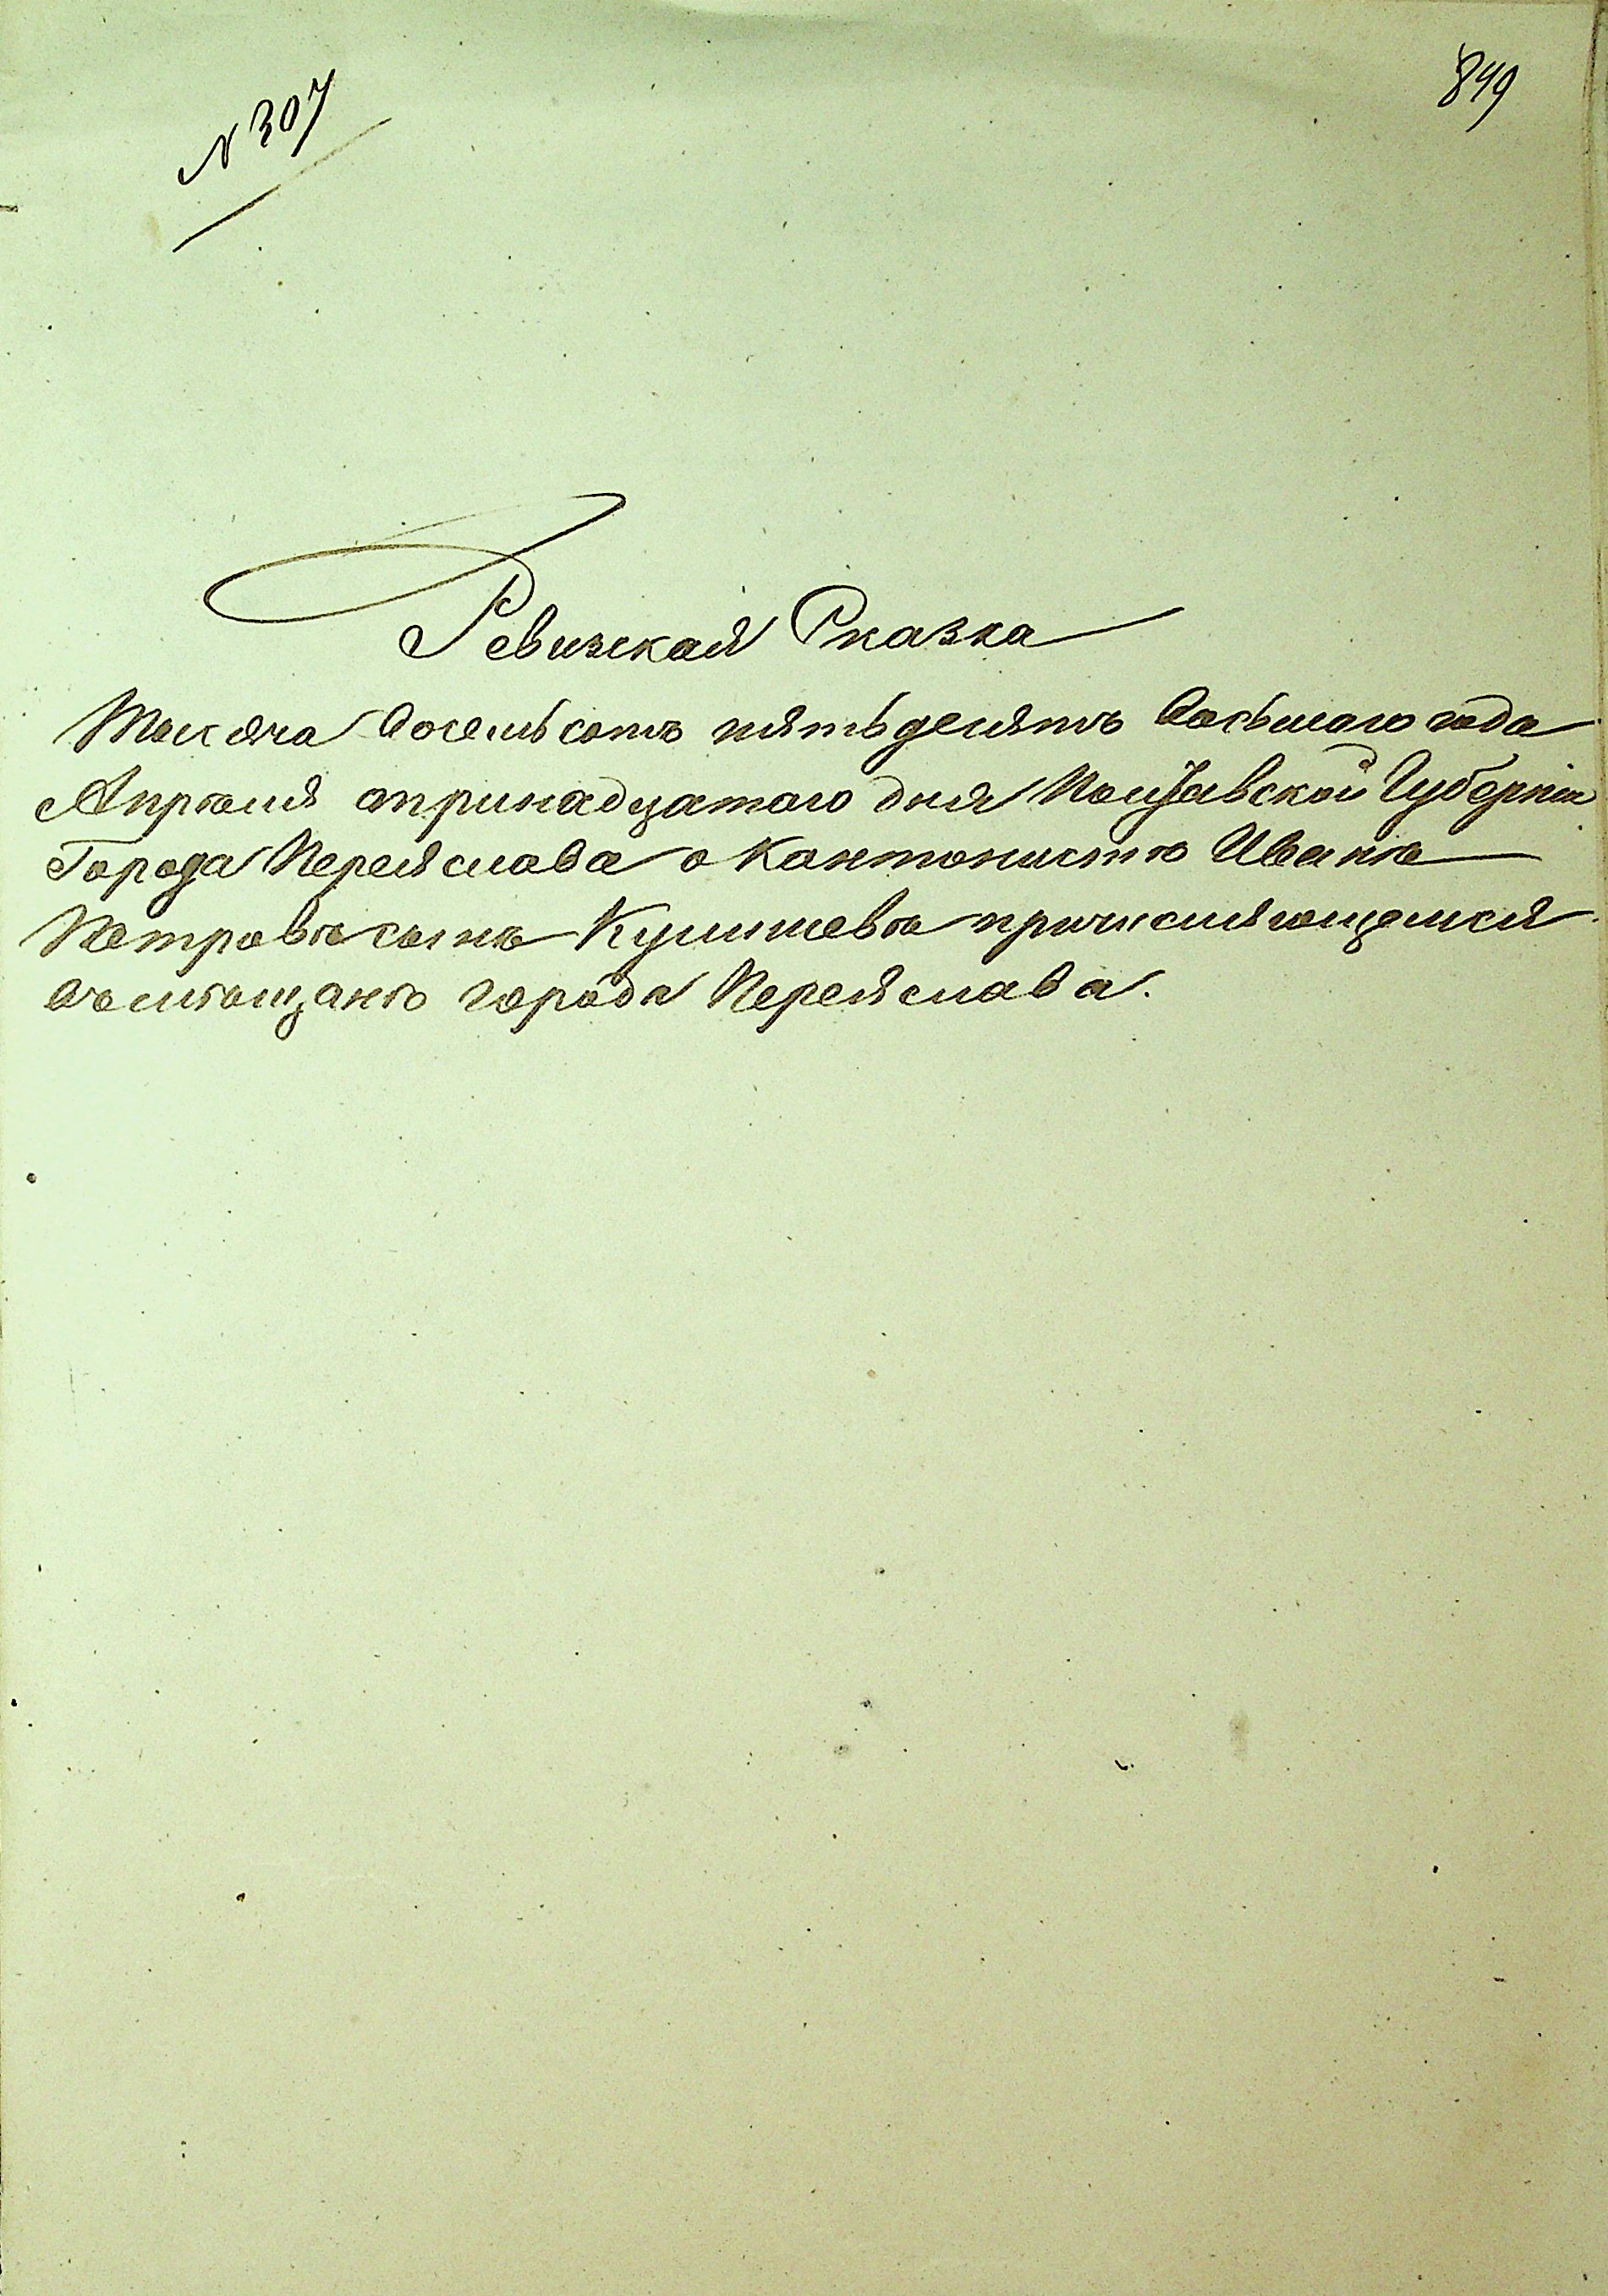 N 307
849
Ревизская Сказка
Тысяча восемьсотъ пятьдесятъ восьмаго года
Апрѣля тринадцатаго дня Полтавской Губерніи
Города Переяслава о Кантонистѣ Иванѣ
Петровѣ сынѣ Кулишевѣ причисляющемся
въ мѣщанѣ города Переяслава.